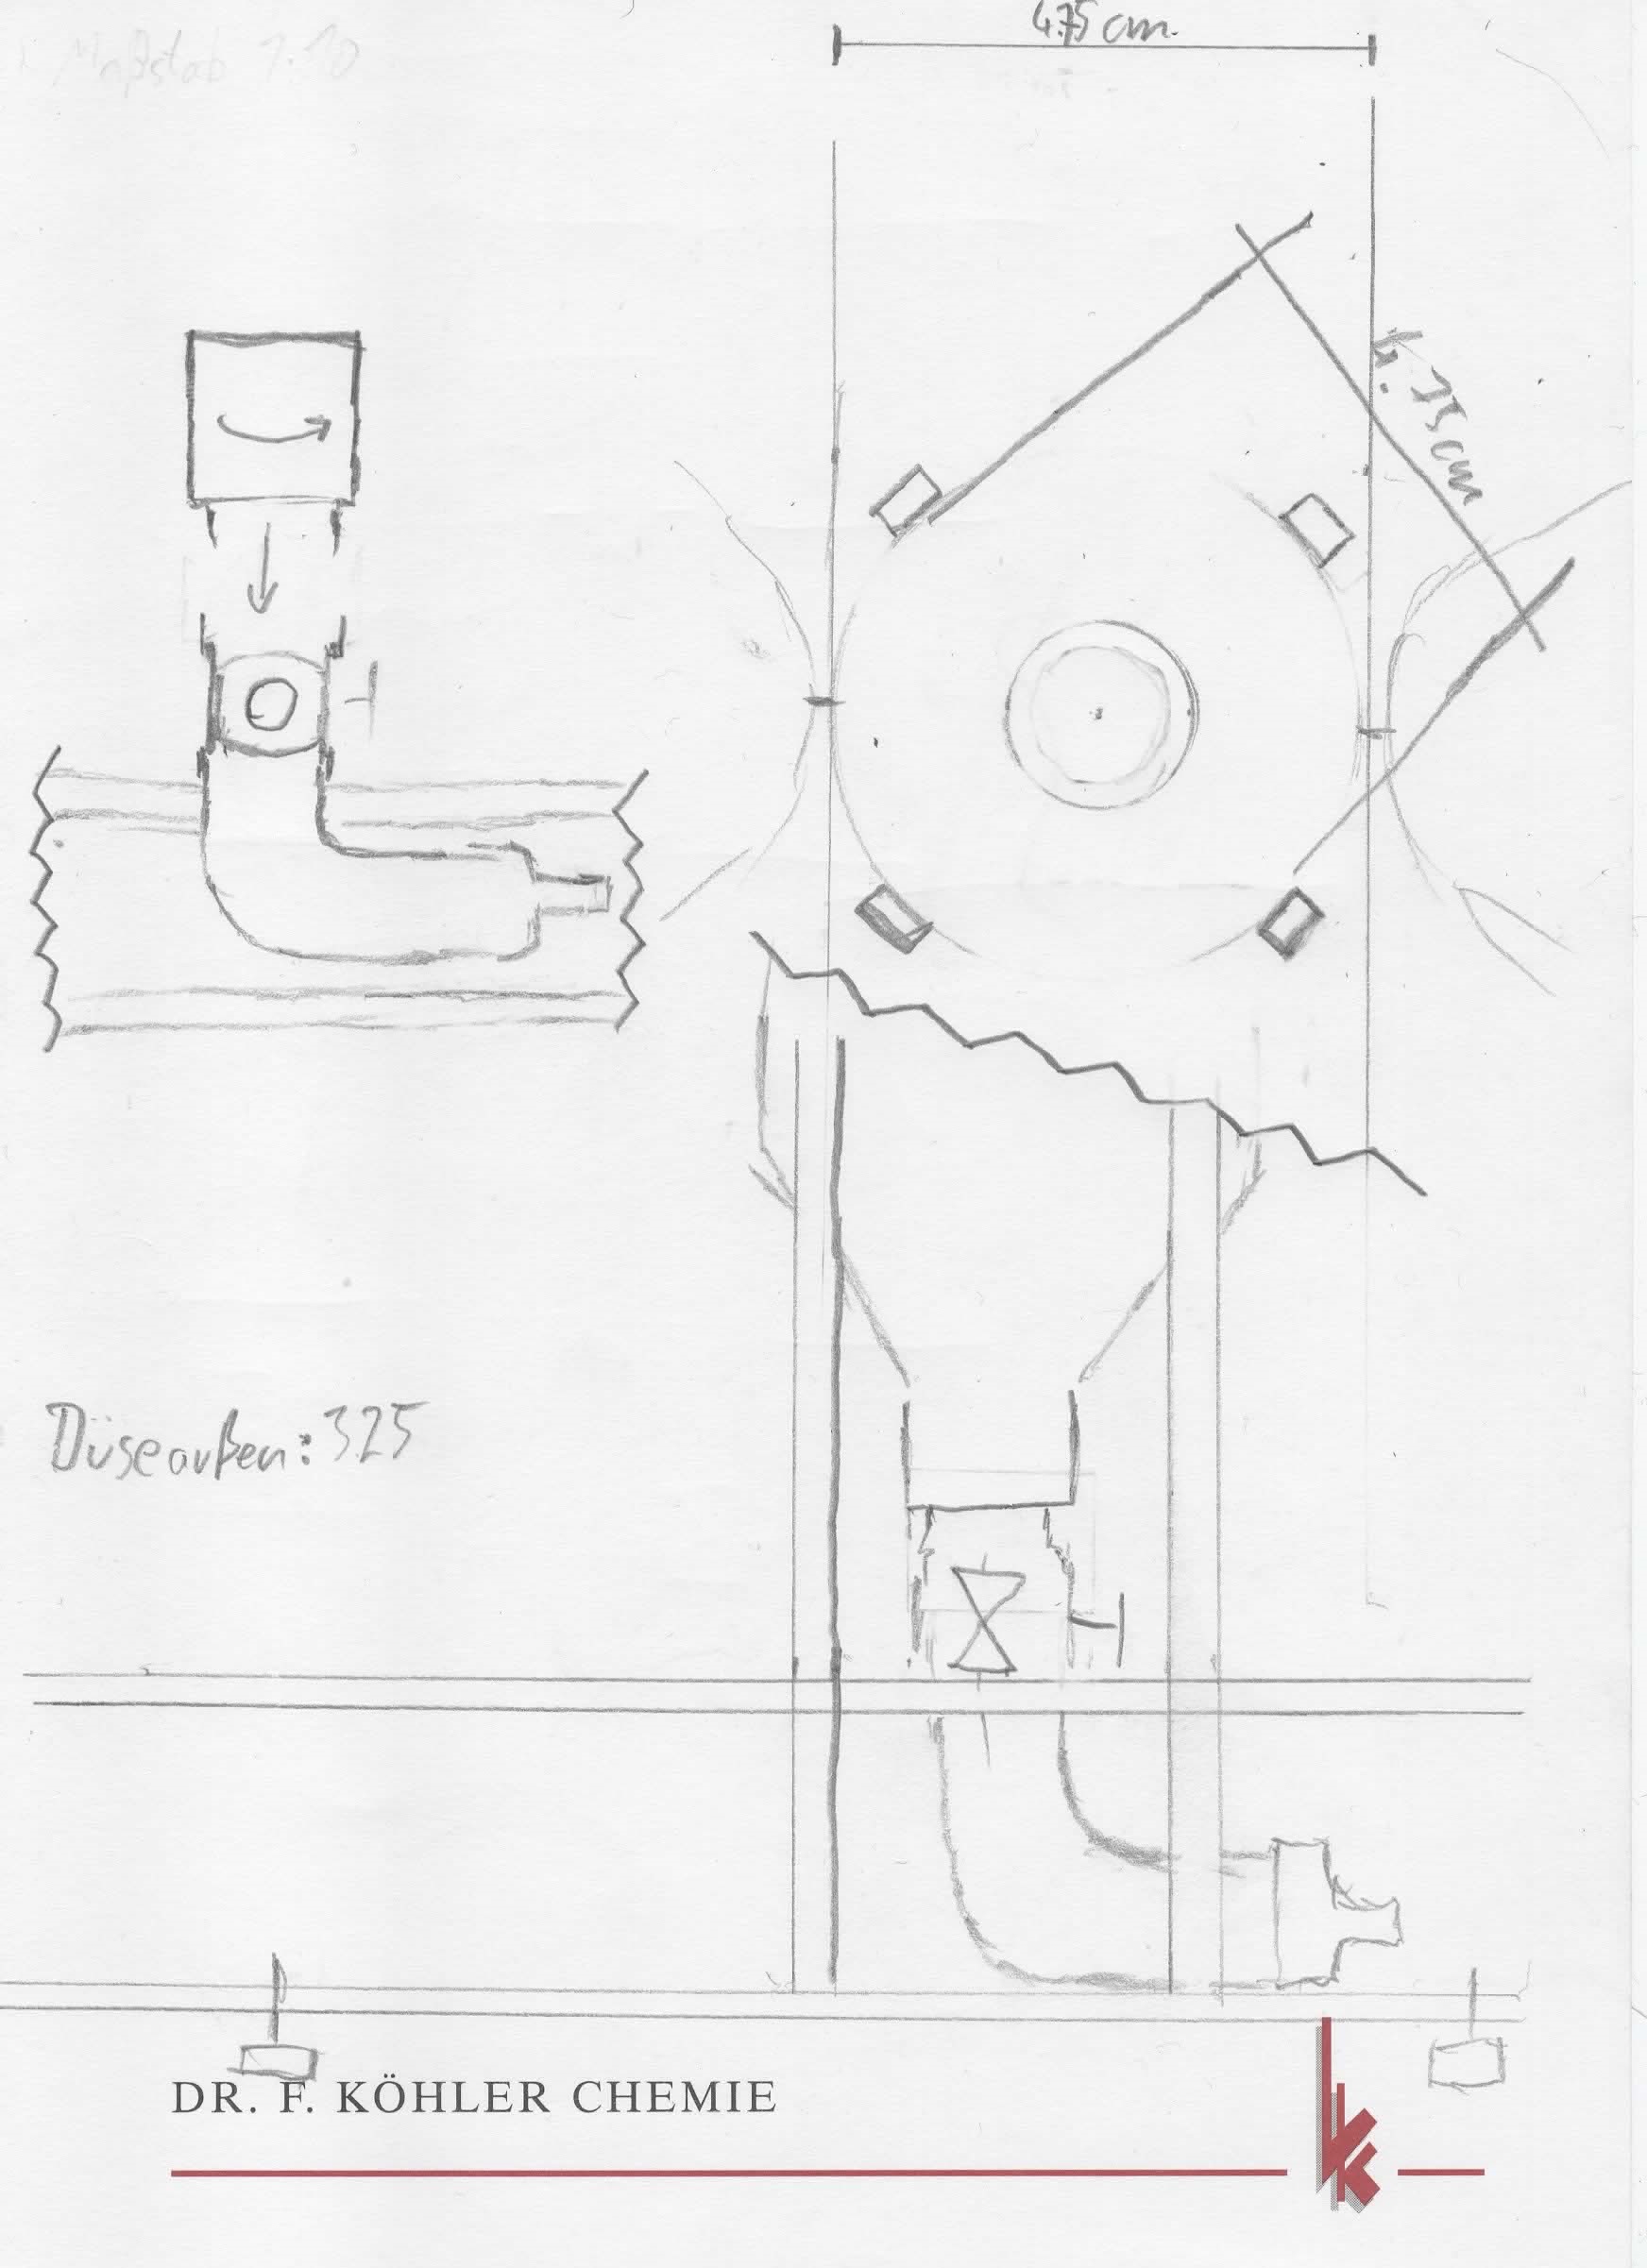 Maßstab 1:10
4.75 cm.
4.75cm
Düseaußen: 325
DR. F. KÖHLER CHEMIE